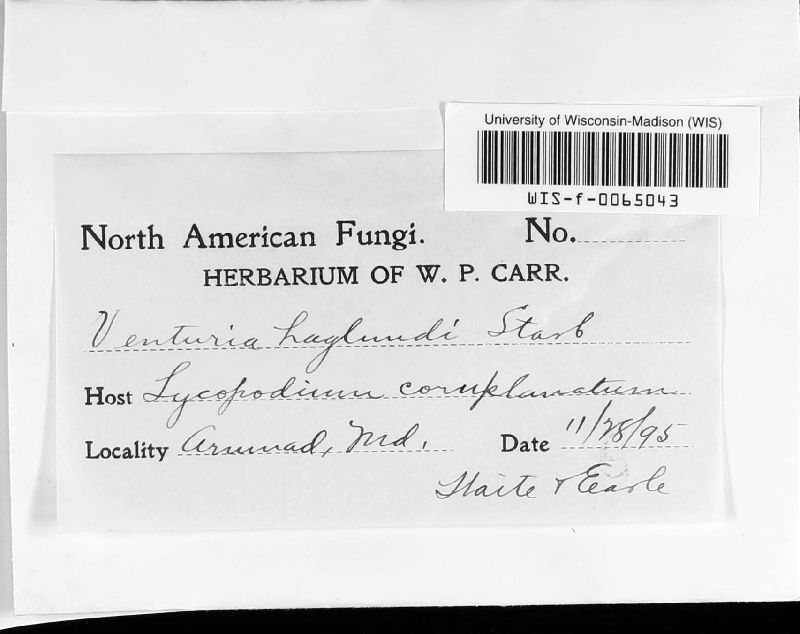 University of Wisconsin-Madison (WIS)
WIS-f-0065043
North American Fungi. No.
HERBARIUM OF W. P. CARR.
Venturia haglundi Starb
Host Lycopodium complanatum
Locality Md. Date 11/28/95
& Earle